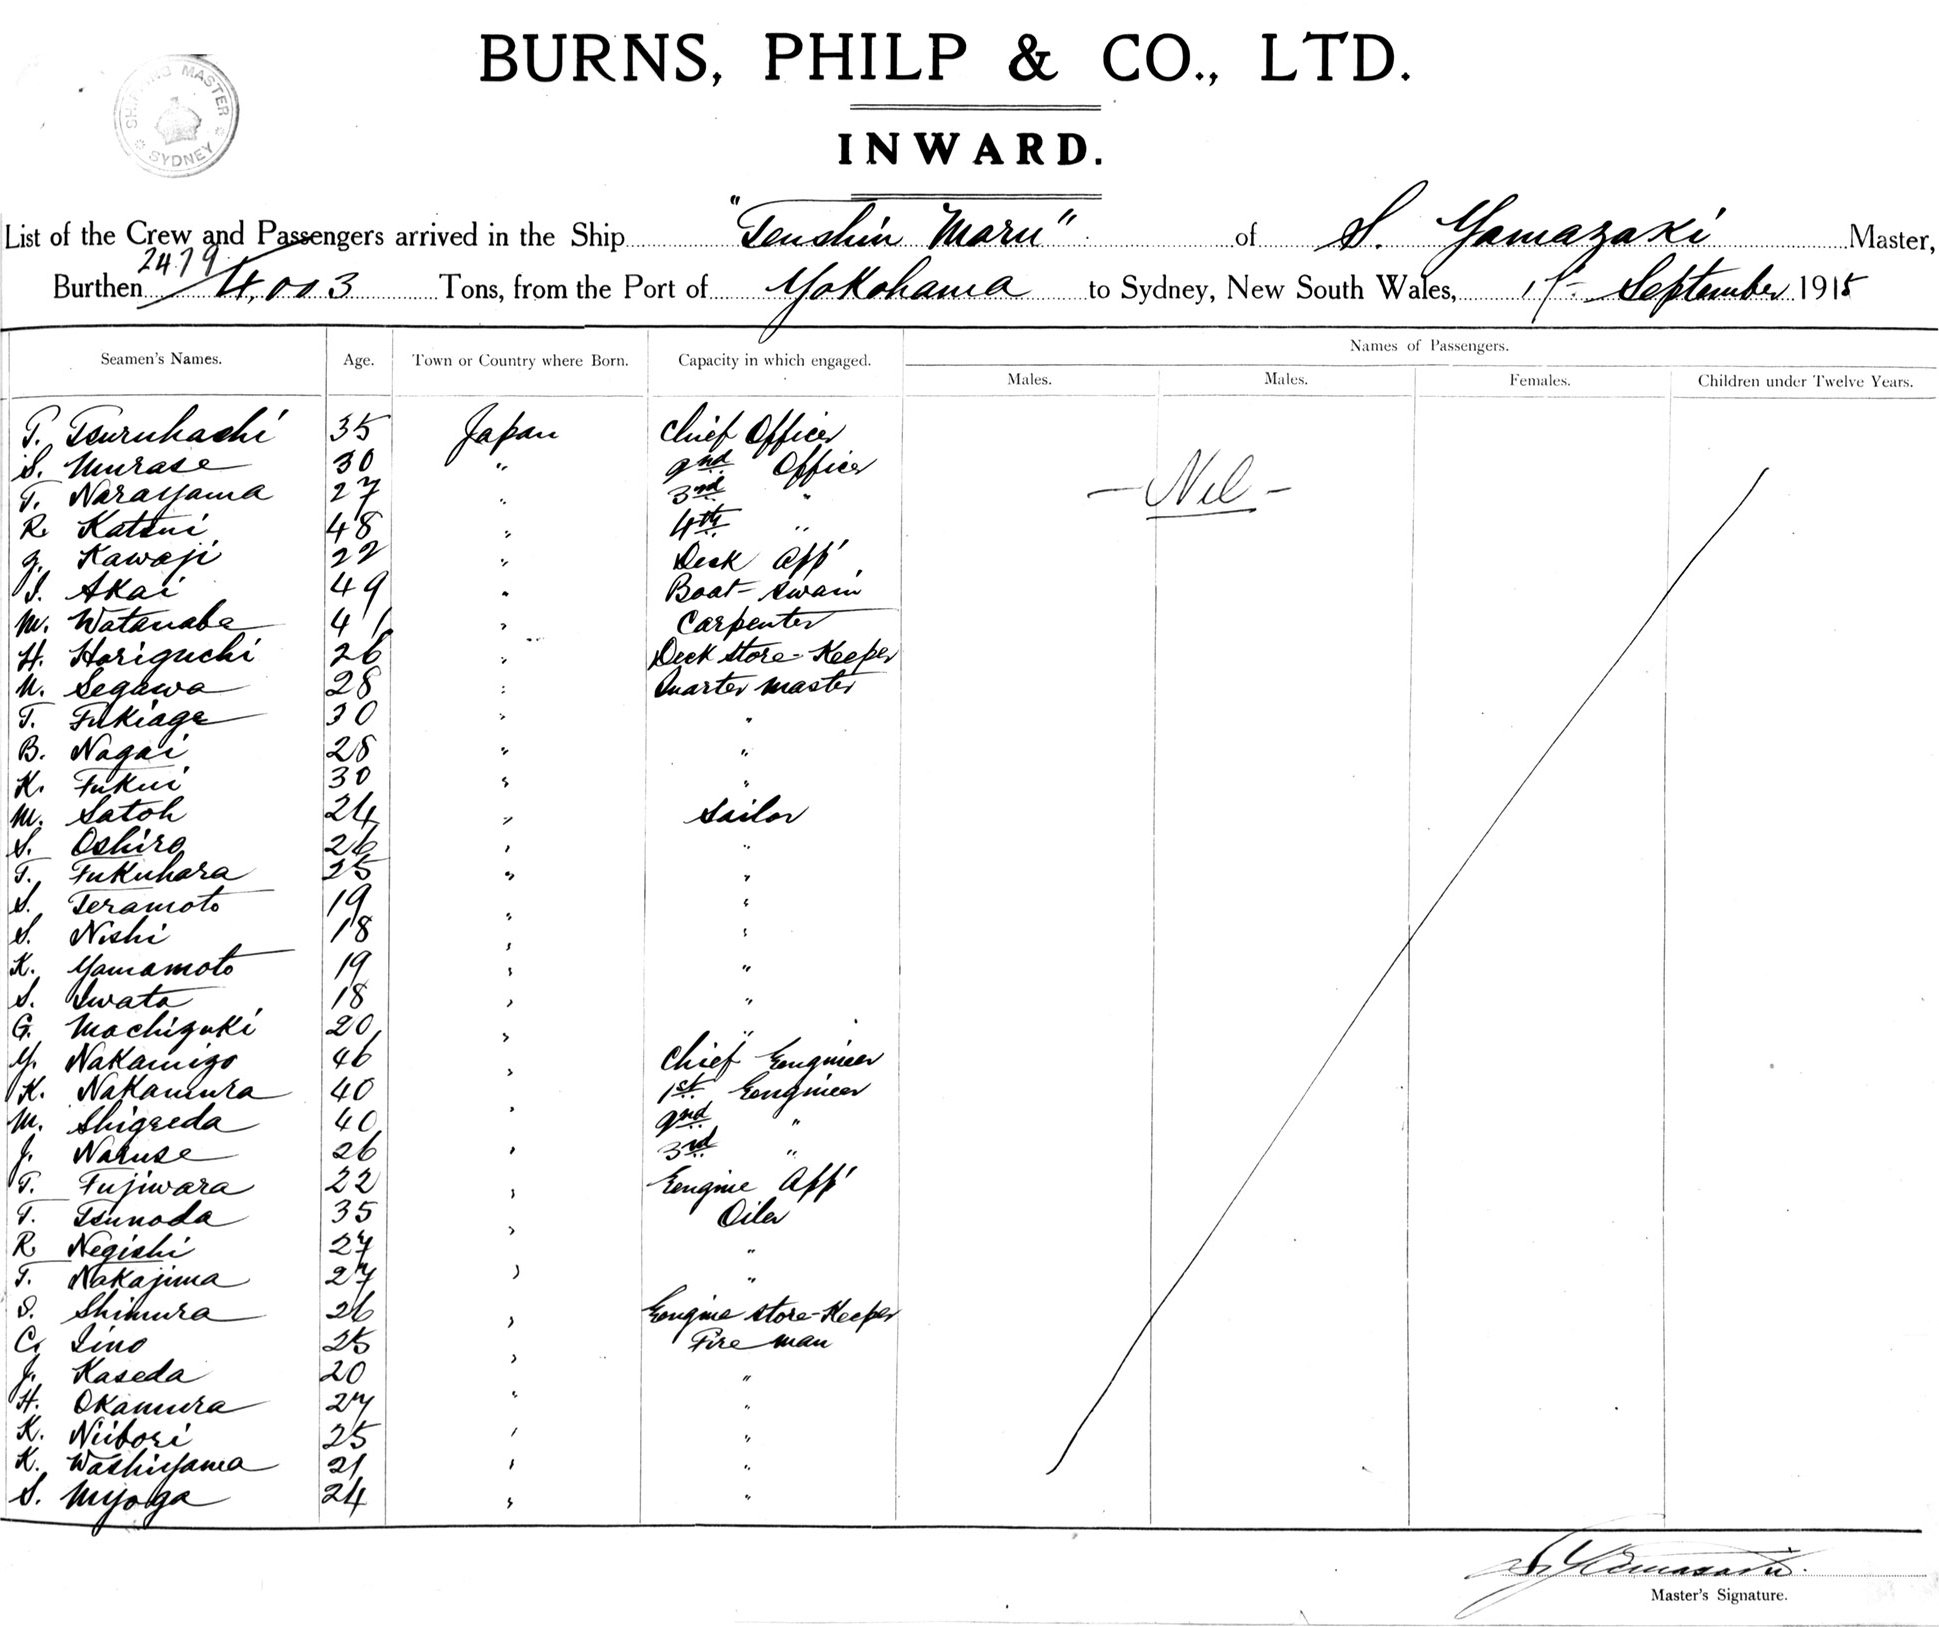 BURNS, PHILP & CO., LTD.
SHIPPING MASTER SYDNEY
INWARD.
List of the Crew and Passengers arrived in the Ship "Tenshin Maru" of S. Yamazaki Master,
2479
Burthen 4,003 Tons, from the Port of Yokohama to Sydney, New South Wales, September 1915
Seamen's Names. Age. Town or Country where Born. Capacity in which engaged. Names of Passengers.
Males. Males. Females. Children under Twelve Years.
T. Tsuruhashi 35 Japan Chief Officer
S. Murase 30 " 2nd Officer
T. Narayama 27 " 3rd " - Nil -
R. Katsui 48 " 4th "
Kawaji 22 " Deck App'
Akai 49 " Boat-swain
M. Watanabe 41 " Carpenter
H. Horiguchi 26 " Deck Store-Keeper
Segawa 28 " Quarter Master
T. Fukiage 30 " "
B. Nagai 28 " "
K. Fukui 30 " "
M. Satoh 24 " Sailor
S. Oshiro 26 " "
T. Fukuhara 25 " "
S. Teramoto 19 " "
S. Nishi 18 " "
K. Yamamoto 19 " "
S. Iwata 18 " "
G. Mochizuki 20 " "
Y. Nakamizo 46 " Chief Eengineer
K. Nakamura 40 1st Eengineer
M. Shigeeda 40 " 2nd "
J. Naruse 26 " 3rd "
T. Fujiwara 22 " Eengine App'
T. Tsunoda 35 " Oiler
R. Negishi 27 " "
T. Nakajima 27 " "
Shimura 26 " Eengine Store-Keeper
C. Iino 25 " Fire man
J. Kaseda 20 "
H. Okamura 27 " "
K. Niibori 25 " "
K. Washiyama 21 " "
S. Myoga 24 " "
S. Yamazaki
Master's Signature.